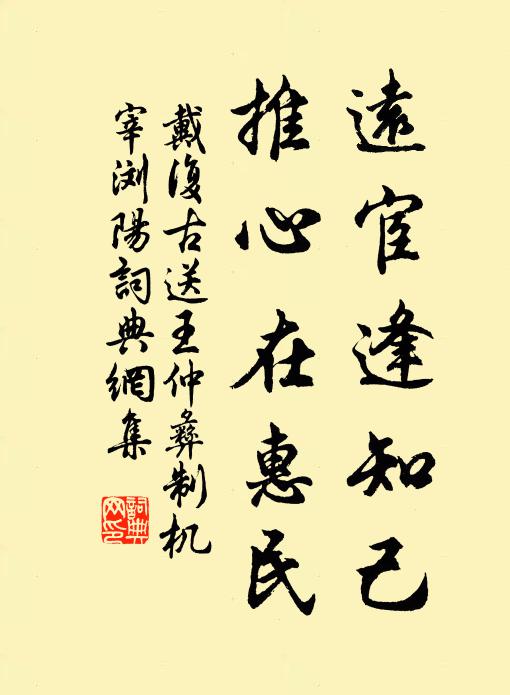 遠宦逢知己
推心在惠民
戴復古送王仲彝制机
宰浏陽詞典網集
詞典